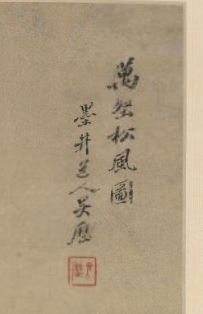 萬壑松風圖
墨井道人吳歷